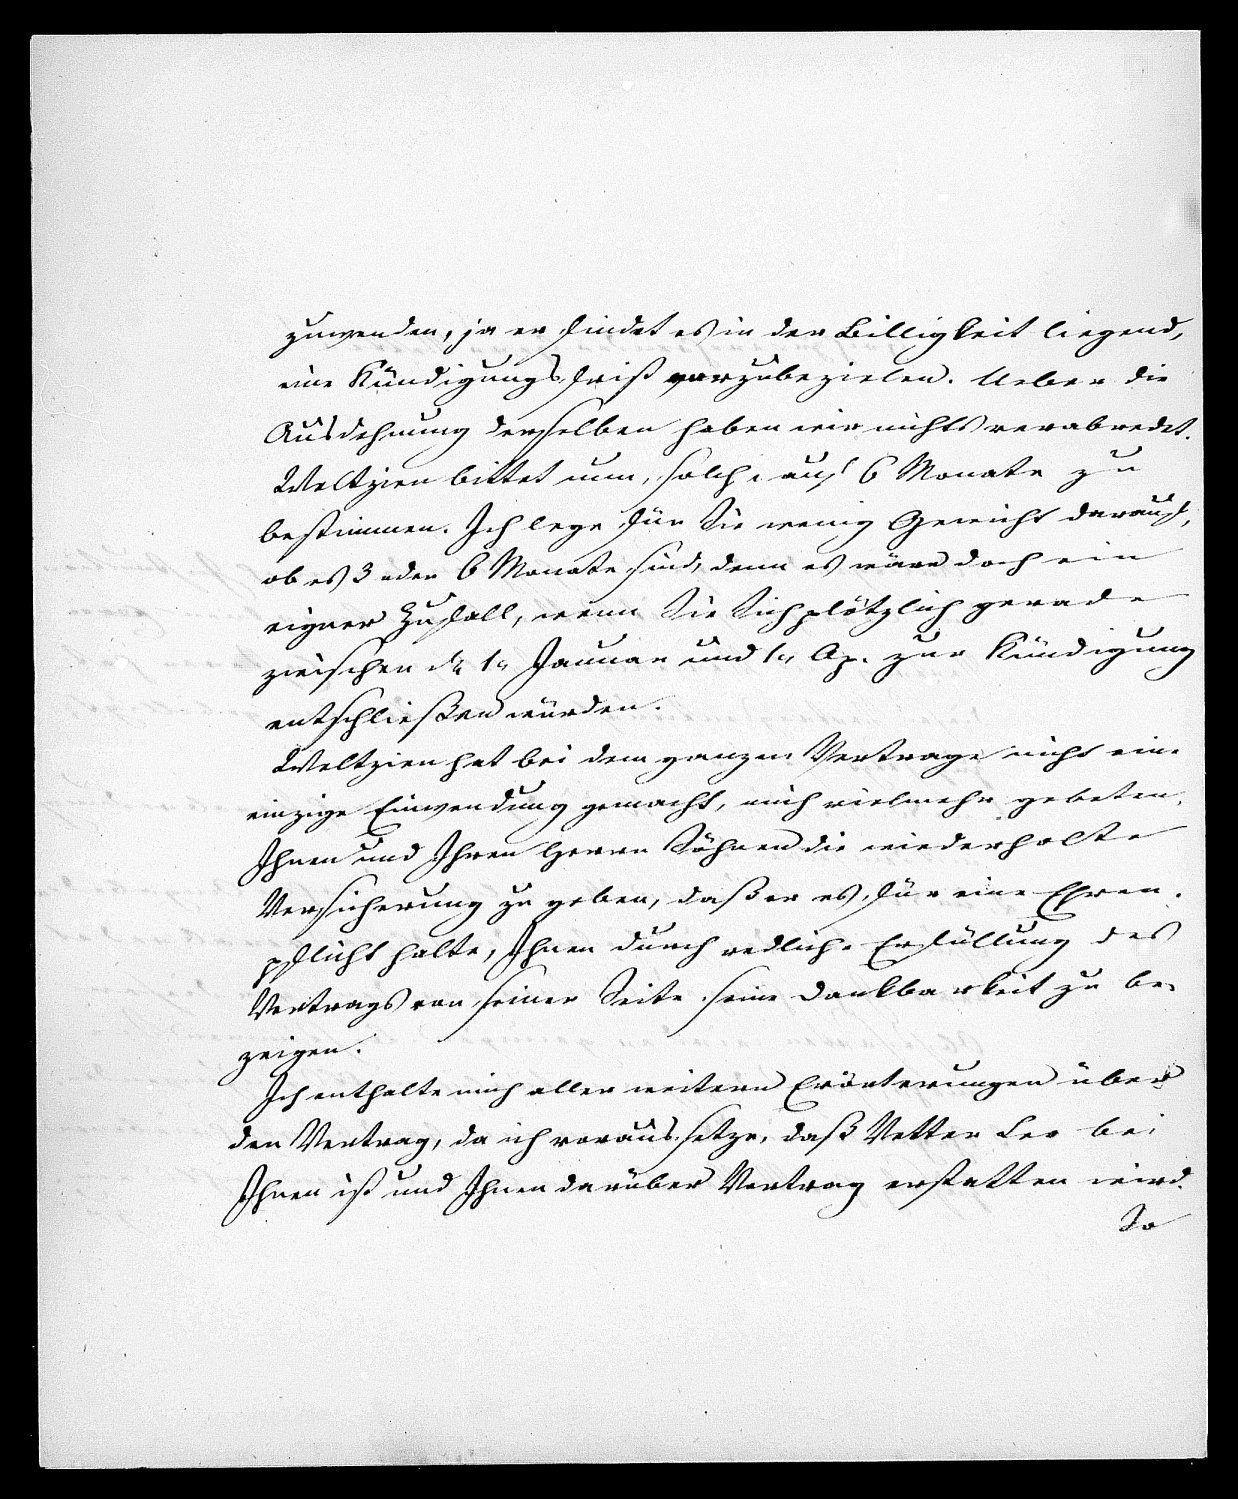 zuwenden, ja er findet es in der Billigkeit liegend,
eine Kündigungsfrist vorzubezielen. Ueber die
Ausdehnung derselben haben wir nichts verabredet.
Weltzien bittet nun, solche auf 6 Monate zu
bestimmen. Ich lege für Sie wenig Gewicht darauf,
ob es 3 oder 6 Monate sind, denn es wäre doch ein
eigner Zufall, wenn Sie Sich plötzlich gerade
zwischen d. 1n Januar und 1n Ap. zur Kündigung
entschließen würden.
Weltzien hat bei dem ganzen Vertrage nicht eine
einzige Einwendung gemacht, mich vielmehr gebeten,
Ihnen und Ihren Herrn Söhnen die wiederholte
Versicherung zu geben, daß er es für eine Ehren-
pflicht halte, Ihnen durch redliche Erfüllung des
Vertrags von seiner Seite seine Dankbarkeit zu be-
zeigen.
Ich enthalte mich aller weitern Erörterungen über
den Vertrag, da ich voraussetze, daß Vetter Leo bei
Ihnen ist und Ihnen darüber Vortrag erstatten wird.
So